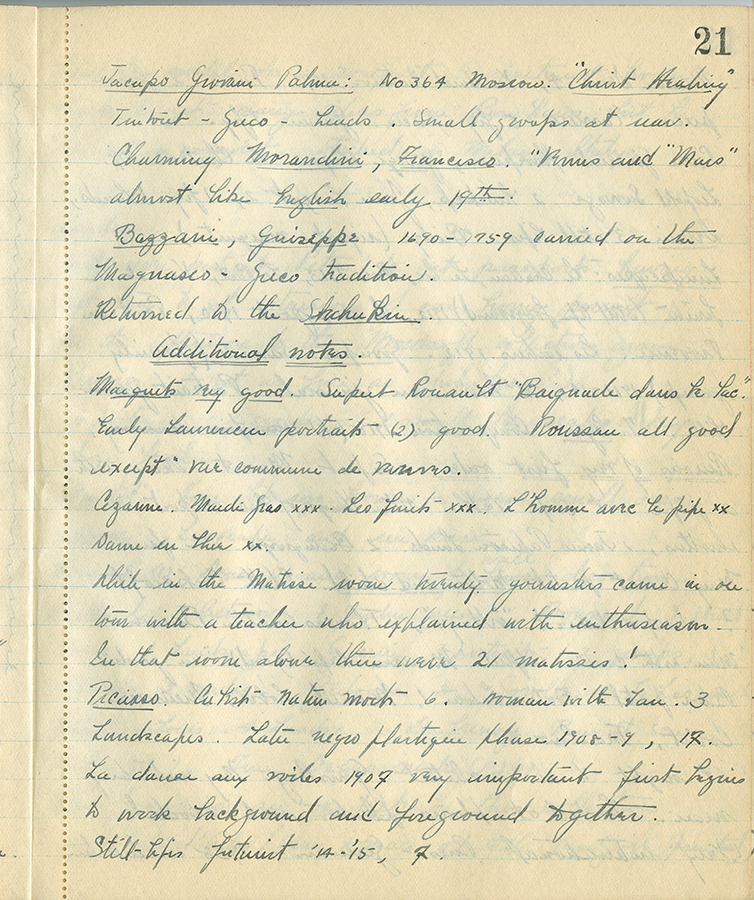 21
Jacupo Giovani Palma: No 364 Moscow. "Christ Healing"
Tintout - Greco - heads. Small groups at rear.
Charming Morandini, Francesco. "Venus and "Mars"
almost like English early 19th.
Bazzani, Guiseppe 1690-1759 carried on the
Magnasco - Greco tradition.
Returned to the Stchukin.
Additional notes.
Marquets very good. Superb Rouault "Baignade dans le lac".
Early Laurencin portraits (2) good. Roussau all good
except "vue commune de Vanves.
Cezanne. Mardi Gras xxx. Les fruits xxx. L'homme avec le pipe xx
Dame en bleu xx.
While in the Matisse room twenty youngsters came in on
tour with a teacher who explained with enthusiasm.
In that room alone there were 21 matisses!
Picasso. Cubist Nature morts 6. Woman with Fan. 3
Landscapes. Late negro plastique phase 1908-9, 17.
La danse aux voiles 1907 very important first begins
to work background and foreground together.
Still-lifes futurist '14-'15, 7.